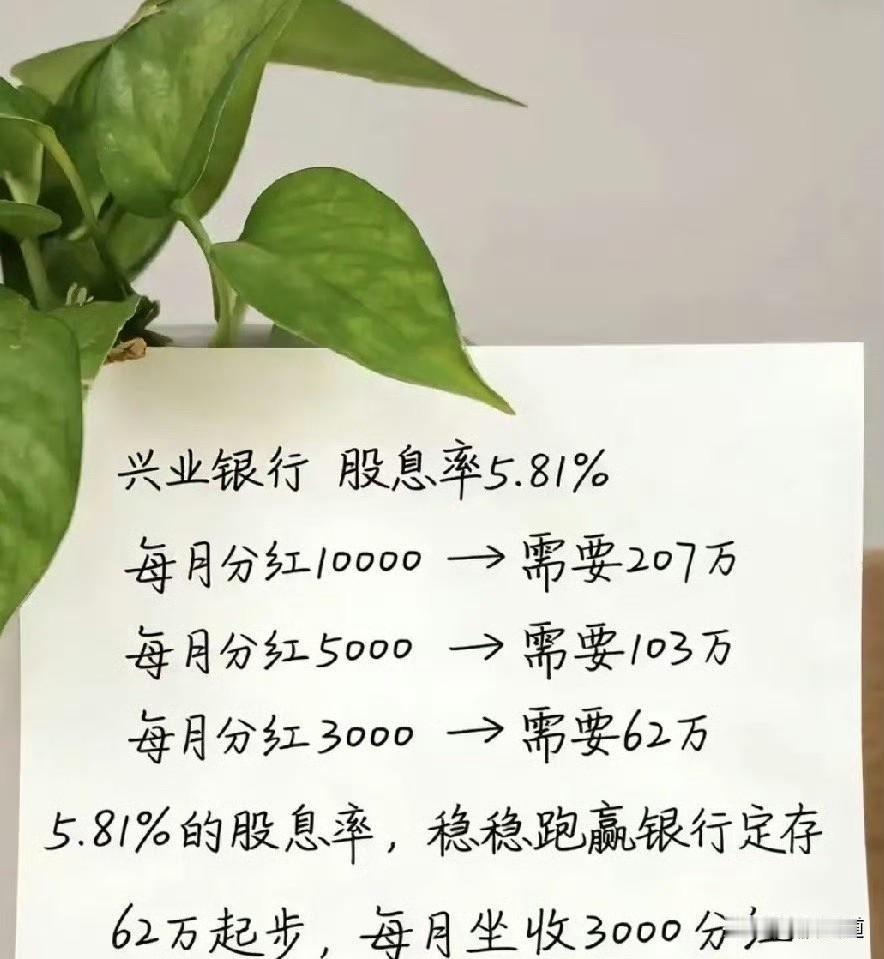 兴业银行 股息率5.81%
每月分红10000 → 需要207万
每月分红5000 → 需要103万
每月分红3000 → 需要62万
5.81%的股息率，稳稳跑赢银行定存
62万起步，每月坐收3000分红
道